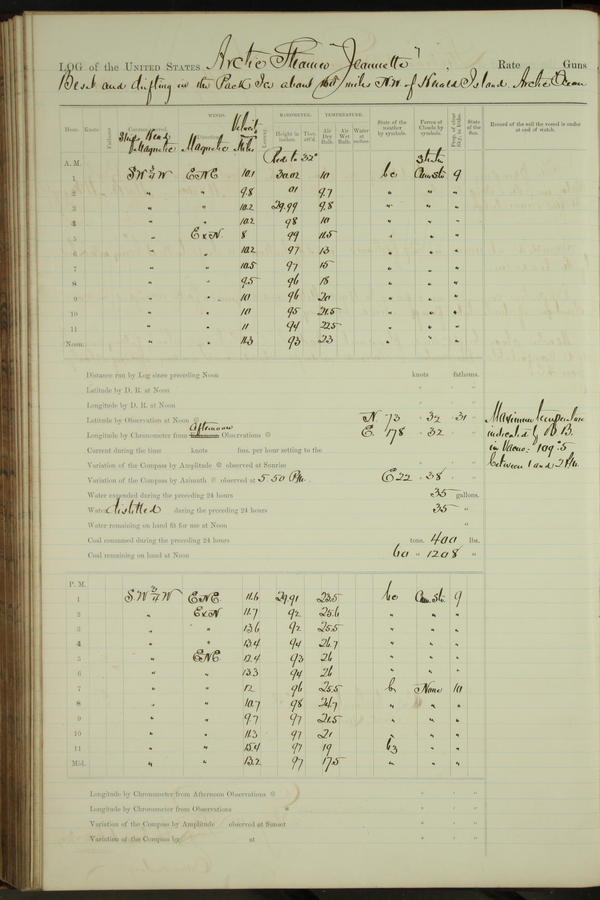 LOG of the UNITED STATES Arctic Steamer "Jeannette" Rate Guns
Beset and drifting in the Pack Ice about miles N.W. of Herald Island. Arctic Ocean
WINDS. BAROMETER. TEMPERATURE.
Hour. Knots Fathoms Ship's Head Magnetic Direction Magnetic Velocity Miles Leeway Height in inches. Ther. att'd. Air Dry Bulb. Air Wet Bulb. Water at surface. State of the weather by symbols. Forms of Clouds by symbols. Prop. of clear Sky, in tenths. State of the Sea. Record of the sail the vessel is under at end of watch.
Red. to 32°
A. M.
1 S.W ¾ W ENE 10.1 30.02 10 bc Cum. str. 9
2 " " 9.8 01 9.7 " " "
3 " " 10.2 29.99 9.8 " " "
4 " " 10.2 98 10 " " "
5 " E x N 8 99 11.5 " " "
6 " " 10.2 97 13 " " "
7 " " 10.5 97 15 " " "
8 " " 9.5 96 18 " " "
9 " " 10 96 20 " " "
10 " " 10 95 21.5 " " "
11 " " 11 94 22.5 " " "
Noon. " " 11.3 93 23 " " "
Distance run by Log since preceding Noon knots fathoms.
Latitude by D. R. at Noon
Longitude by D. R. at Noon
Latitude by Observation at Noon N. 73 32 31
Longitude by Chronometer from Afternoon Observations E. 178 32
Current during the time knots fms. per hour setting to the
Variation of the Compass by Amplitude observed at Sunrise
Variation of the Compass by Azimuth observed at 5.50 P.M. E 22 38
Water expended during the preceding 24 hours 35 gallons.
Water distilled during the preceding 24 hours 35 "
Water remaining on hand fit for use at Noon "
Coal consumed during the preceding 24 hours tons. 400 lbs.
Coal remaining on hand at Noon 60 " 1208 "
Maximum temperature
indicated by B B.
in Vacuo: 109°.5
between 1 and 2 P.M.
P. M.
1 S.W ¾ W ENE 11.6 29.91 23.5 bc Cum. str. 9
2 " E x N 11.7 92 25.6 " " "
3 " " 13.6 92 25.5 " " "
4 " " 13.4 94 26.7 " " "
5 " ENE 12.4 93 26 " " "
6 " " 13.3 94 26 " " "
7 " " 12 96 25.5 b None 10
8 " " 10.7 98 " " "
9 " " 9.7 97 21.5 " " "
10 " " 11.3 97 21 " " "
11 " " 15.4 97 19 " "
Mid. " " 13.2 97 17.5 " " "
Longitude by Chronometer from Afternoon Observations
Longitude by Chronometer from Observations
Variation of the Compass by Amplitude observed at Sunset
Variation of the Compass by at